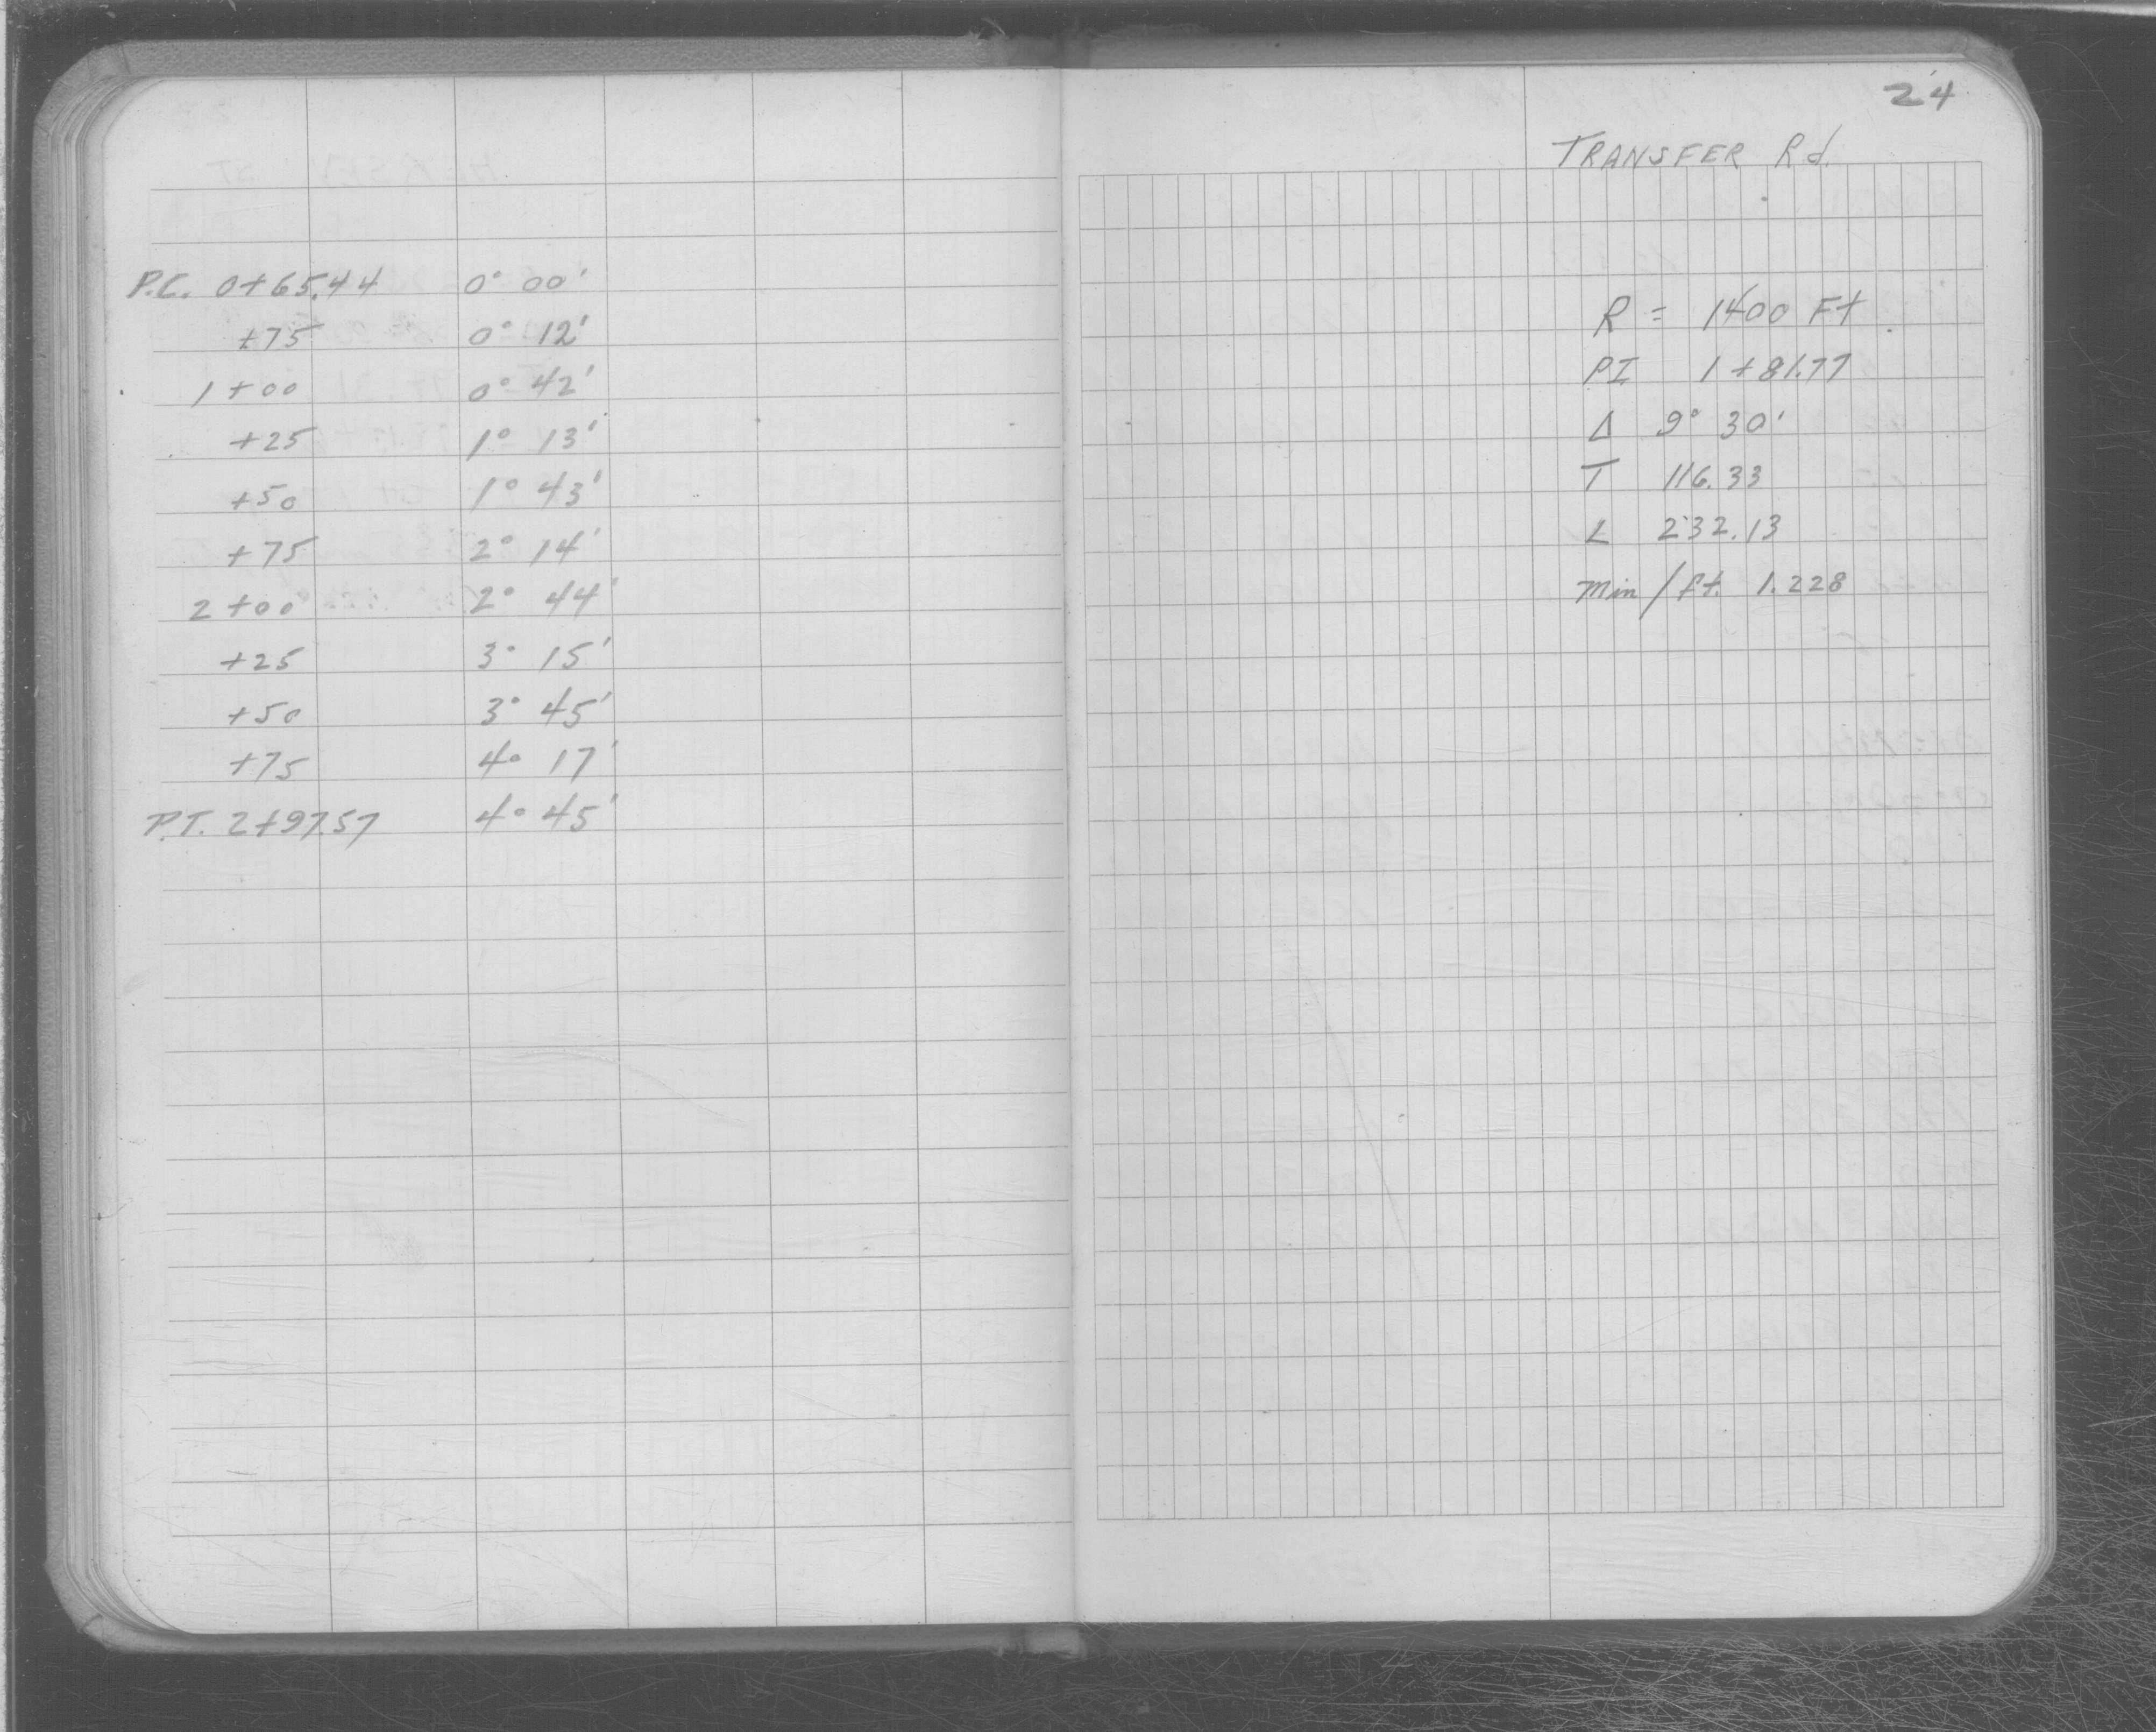 P.C. 0+65.44 0° 00'
+75 0° 12'
1+00 0° 42'
+25 1° 13'
+50 1° 43'
+75 2° 14'
2+00 2° 44'
+25 3° 15'
+50 3° 45'
+75 4° 17'
P.T. 2+97.57 4° 45'
24
TRANSFER Rd.
R = 1400 Ft.
PI 1+81.77
Δ 9° 30'
T 116.33
L 232.13
Min/ft. 1.228